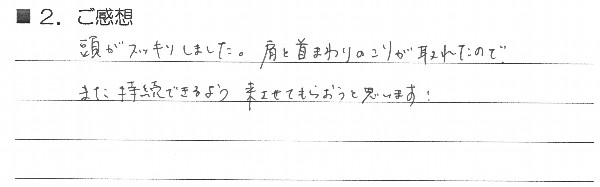 ■ 2. ご感想
頭がスッキリしました。肩と首まわりのこりが取れたので
また持続できるよう 来させてもらおうと思います!